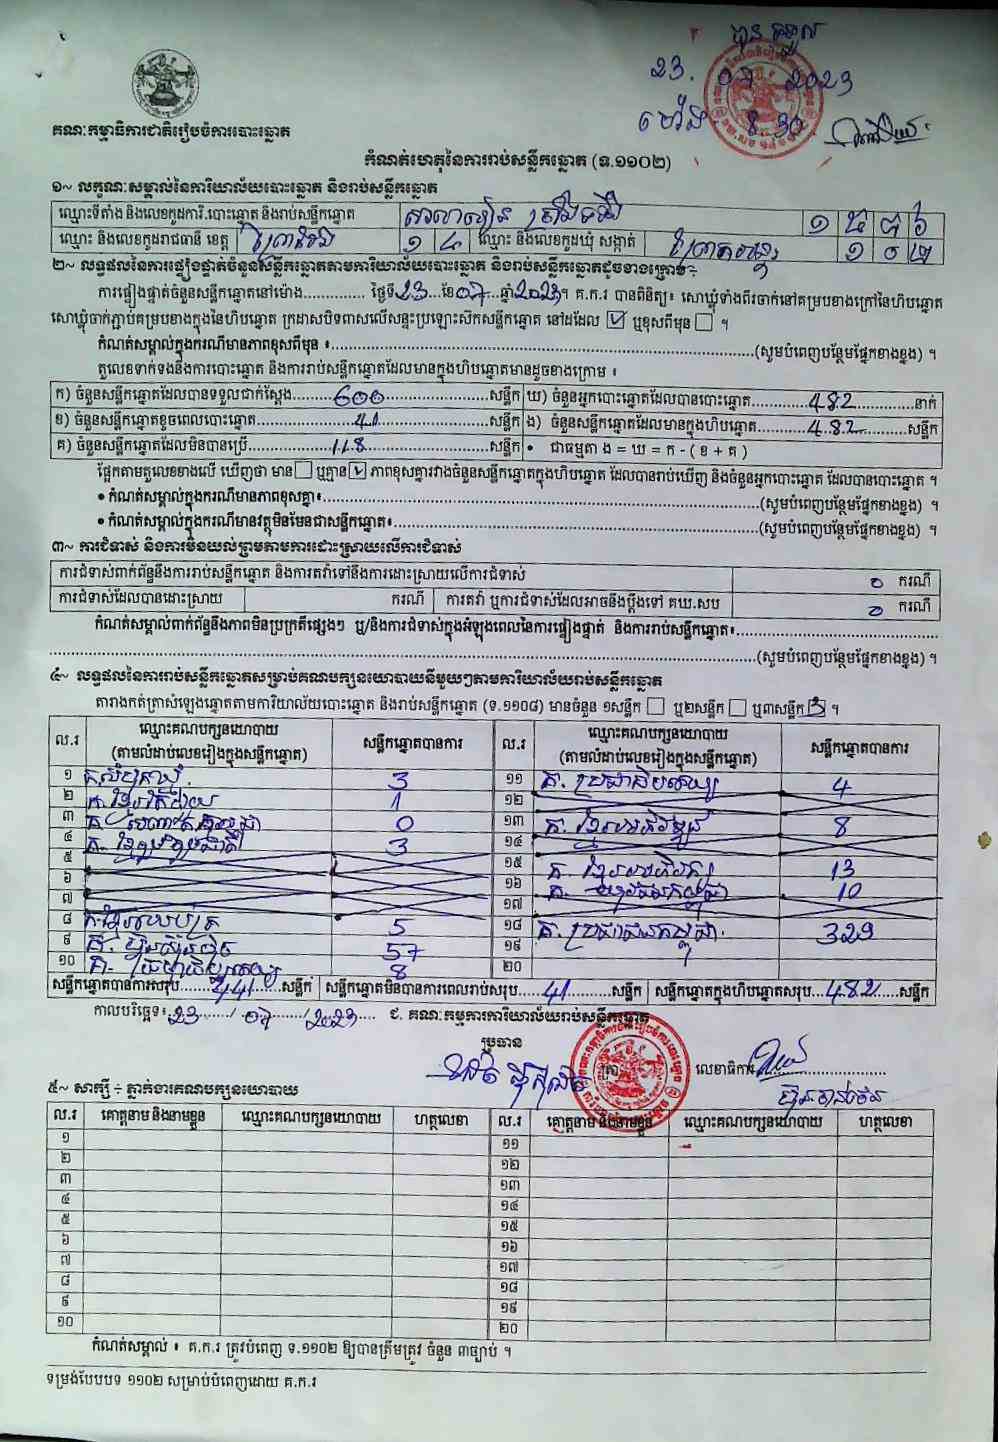 23. 07 2023
ម៉ោង 8.30
គណៈកម្មាធិការជាតិរៀបចំការបោះឆ្នោត
កំណត់ហេតុនៃការរាប់សន្លឹកឆ្នោត (ទ.១១០២)
១~ លក្ខណៈសម្គាល់នៃការិយាល័យបោះឆ្នោត និងរាប់សន្លឹកឆ្នោត
ឈ្មោះទីតាំង និងលេខកូដការិ.បោះឆ្នោត និងរាប់សន្លឹកឆ្នោត
ឈ្មោះ និងលេខកូដរាជធានី ខេត្ត ព្រៃវែង ១ ៤ ឈ្មោះ និងលេខកូដឃុំ សង្កាត់ ១ ០ ២
២~ លទ្ធផលនៃការផ្ទៀងផ្ទាត់ចំនួនសន្លឹកឆ្នោតតាមការិយាល័យបោះឆ្នោត និងរាប់សន្លឹកឆ្នោតដូចខាងក្រោម÷
ការផ្ទៀងផ្ទាត់ចំនួនសន្លឹកឆ្នោតនៅម៉ោង.............. ថ្ងៃទី23...ខែ07...ឆ្នាំ2023។ គ.ក.រ បានពិនិត្យ៖ សោឃ្លុំទាំងពីរចាក់នៅគម្របខាងក្រៅនៃហិបឆ្នោត
សោឃ្លុំចាក់ភ្ជាប់គម្របខាងក្នុងនៃហិបឆ្នោត ក្រដាសបិទពាសលើសន្ទះប្រឡោះស៊កសន្លឹកឆ្នោត នៅដដែល ☑ ឬខុសពីមុន ☐ ។
កំណត់សម្គាល់ក្នុងករណីមានភាពខុសពីមុន ៖......(សូមបំពេញបន្ថែមផ្នែកខាងខ្នង) ។
តួលេខទាក់ទងនឹងការបោះឆ្នោត និងការរាប់សន្លឹកឆ្នោតដែលមានក្នុងហិបឆ្នោតមានដូចខាងក្រោម ៖
ក) ចំនួនសន្លឹកឆ្នោតដែលបានទទួលជាក់ស្តែង......600......សន្លឹក ឃ) ចំនួនអ្នកបោះឆ្នោតដែលបានបោះឆ្នោត......482......នាក់
ខ) ចំនួនសន្លឹកឆ្នោតខូចពេលបោះឆ្នោត............សន្លឹក ង) ចំនួនសន្លឹកឆ្នោតដែលមានក្នុងហិបឆ្នោត......482......សន្លឹក
គ) ចំនួនសន្លឹកឆ្នោតដែលមិនបានប្រើ......118......សន្លឹក • ជាធម្មតា ង = ឃ = ក - ( ខ + គ )
ផ្អែកតាមតួលេខខាងលើ ឃើញថា មាន ☐ ឬគ្មាន ☑ ភាពខុសគ្នារវាងចំនួនសន្លឹកឆ្នោតក្នុងហិបឆ្នោត ដែលបានរាប់ឃើញ និងចំនួនអ្នកបោះឆ្នោត ដែលបានបោះឆ្នោត ។
• កំណត់សម្គាល់ក្នុងករណីមានភាពខុសគ្នា៖......(សូមបំពេញបន្ថែមផ្នែកខាងខ្នង) ។
• កំណត់សម្គាល់ក្នុងករណីមានវត្ថុមិនមែនជាសន្លឹកឆ្នោត៖......(សូមបំពេញបន្ថែមផ្នែកខាងខ្នង) ។
៣~ ការជំទាស់ និងការមិនយល់ព្រមតាមការដោះស្រាយលើការជំទាស់
ការជំទាស់ពាក់ព័ន្ធនឹងការរាប់សន្លឹកឆ្នោត និងការតវ៉ាទៅនឹងការដោះស្រាយលើការជំទាស់ 0 ករណី
ការជំទាស់ដែលបានដោះស្រាយ ករណី ការតវ៉ា ឬការជំទាស់ដែលអាចនឹងប្តឹងទៅ គឃ.សប 0 ករណី
កំណត់សម្គាល់ពាក់ព័ន្ធនឹងភាពមិនប្រក្រតីផ្សេងៗ ឬ/និងការជំទាស់ក្នុងអំឡុងពេលនៃការផ្ទៀងផ្ទាត់ និងការរាប់សន្លឹកឆ្នោត៖......
......(សូមបំពេញបន្ថែមផ្នែកខាងខ្នង) ។
៤~ លទ្ធផលនៃការរាប់សន្លឹកឆ្នោតសម្រាប់គណបក្សនយោបាយនីមួយៗតាមការិយាល័យរាប់សន្លឹកឆ្នោត
តារាងកត់ត្រាសំឡេងឆ្នោតតាមការិយាល័យបោះឆ្នោត និងរាប់សន្លឹកឆ្នោត (ទ.១១០៨) មានចំនួន ១សន្លឹក ☐ ឬ២សន្លឹក ☐ ឬ៣សន្លឹក ☑ ។
ល.រ ឈ្មោះគណបក្សនយោបាយ (តាមលំដាប់លេខរៀងក្នុងសន្លឹកឆ្នោត) សន្លឹកឆ្នោតបានការ ល.រ ឈ្មោះគណបក្សនយោបាយ (តាមលំដាប់លេខរៀងក្នុងសន្លឹកឆ្នោត) សន្លឹកឆ្នោតបានការ
១ 3 ១១ គ. ប្រជាធិបតេយ្យ 4
២ 1 ១២
៣ 0 ១៣ 8
៤ គ. ខ្មែររួបរួមជាតិ 3 ១៤
៥ ១៥ 13
៦ ១៦ 10
៧ ១៧
៨ 5 ១៨ គ. ប្រជាជនកម្ពុជា 329
៩ គ. ហ៊្វុនស៊ិនប៉ិច 57 ១៩
១០ 8 ២០
សន្លឹកឆ្នោតបានការសរុប......441......សន្លឹក សន្លឹកឆ្នោតមិនបានការពេលរាប់សរុប......41......សន្លឹក សន្លឹកឆ្នោតក្នុងហិបឆ្នោតសរុប...482...សន្លឹក
កាលបរិច្ឆេទ៖ 23 / 07 / 2023 ជ. គណៈកម្មការការិយាល័យរាប់សន្លឹកឆ្នោត
ប្រធាន
លេខាធិការ
៥~ សាក្សី ÷ ភ្នាក់ងារគណបក្សនយោបាយ
ល.រ គោត្តនាម និងនាមខ្លួន ឈ្មោះគណបក្សនយោបាយ ហត្ថលេខា ល.រ គោត្តនាម និងនាមខ្លួន ឈ្មោះគណបក្សនយោបាយ ហត្ថលេខា
១ ១១
២ ១២
៣ ១៣
៤ ១៤
៥ ១៥
៦ ១៦
៧ ១៧
៨ ១៨
៩ ១៩
១០ ២០
កំណត់សម្គាល់ ៖ គ.ក.រ ត្រូវបំពេញ ទ.១១០២ ឱ្យបានត្រឹមត្រូវ ចំនួន ៣ច្បាប់ ។
ទម្រង់បែបបទ ១១០២ សម្រាប់បំពេញដោយ គ.ក.រ